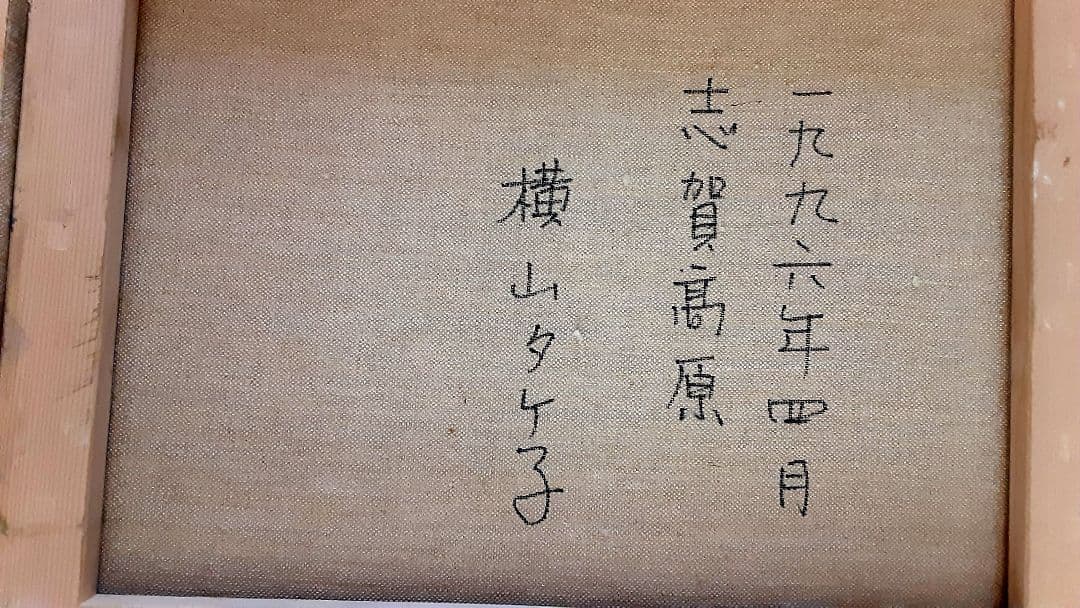 一九九六年四月
志賀高原
横山タケ子